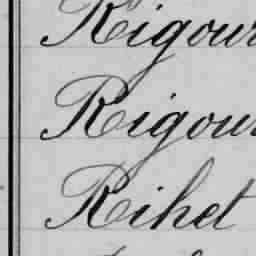 Rigour
Rigour
Rihet